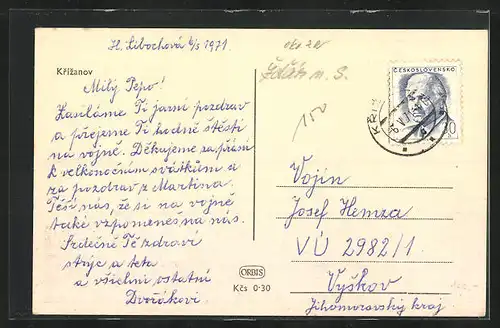 H. Libochová 6/5 1971
okr. ZR
Žďár n. S.
100
Křižanov
Milý Pepo!
Zasíláme Ti jarní pozdrav
a přejeme Ti hodně štěstí
na vojně. Děkujeme za přání
k velkonočním svátkům a
za pozdrav z Martina.
Těší nás, že si na vojně
také vzpomeneš na nás.
Srdečně Tě zdraví
strýc a teta
a všichni ostatní
Dvořákovi
ČESKOSLOVENSKO
KŘI
Vojín
Josef Hemza
VÚ 2982/1
Vyškov
Jihomoravský kraj
ORBIS
Kčs 0·30